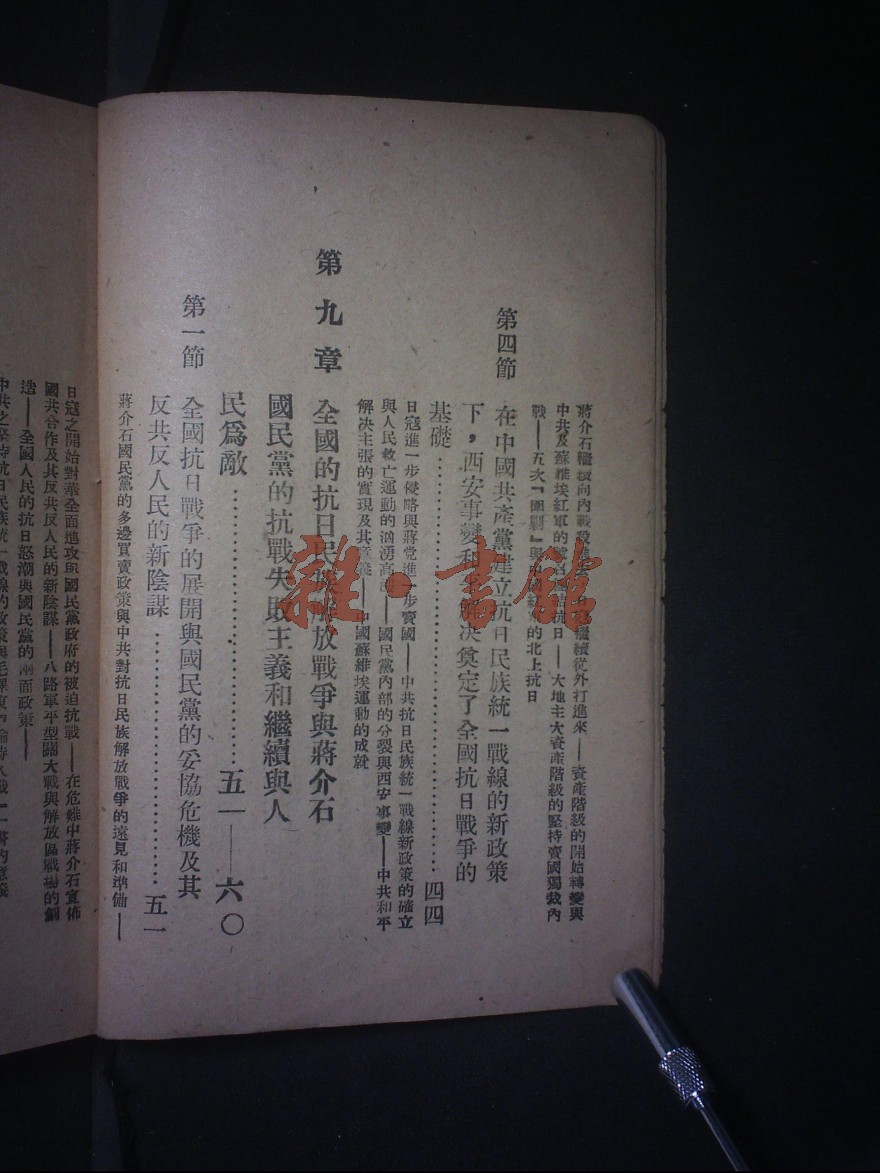 蔣介石繼續向內戰 日 繼續從外打進來——資產階級的開始轉變與
中共及蘇維埃紅軍的號召 結抗日——大地主大資產階級的堅持賣國獨裁內
戰——五次『圍剿』與 的北上抗日
第四節 在中國共產黨建立抗日民族統一戰線的新政策
下，西安事變和平解決奠定了全國抗日戰爭的
基礎……………………四四
日寇進一步侵略與蔣党進一步賣國——中共抗日民族統一戰線新政策的確立
與人民救亡運動的汹湧高漲——國民黨內部的分裂與西安事變——中共和平
解决主張的實現及其意義——中國蘇維埃運動的成就
第九章 全國的抗日民族解放戰爭與蔣介石
國民黨的抗戰失敗主義和繼續與人
民爲敵……………………五一——六〇
第一節 全國抗日戰爭的展開與國民黨的妥協危機及其
反共反人民的新陰謀……………………五一
蔣介石國民黨的多邊買賣政策與中共對抗日民族解放戰爭的遠見和準備——
日寇之開始對華全面進攻與國民黨政府的被迫抗戰——在危難中蔣介石宣佈
國共合作及其反共反人民的新陰謀——八路軍平型關大戰與解放區戰場的創
造——全國人民的抗日怒潮與國民黨的兩面政策——
中共之堅持抗日民族統一戰線的政策與毛澤東『論持久戰』一書的意義
雜·書館